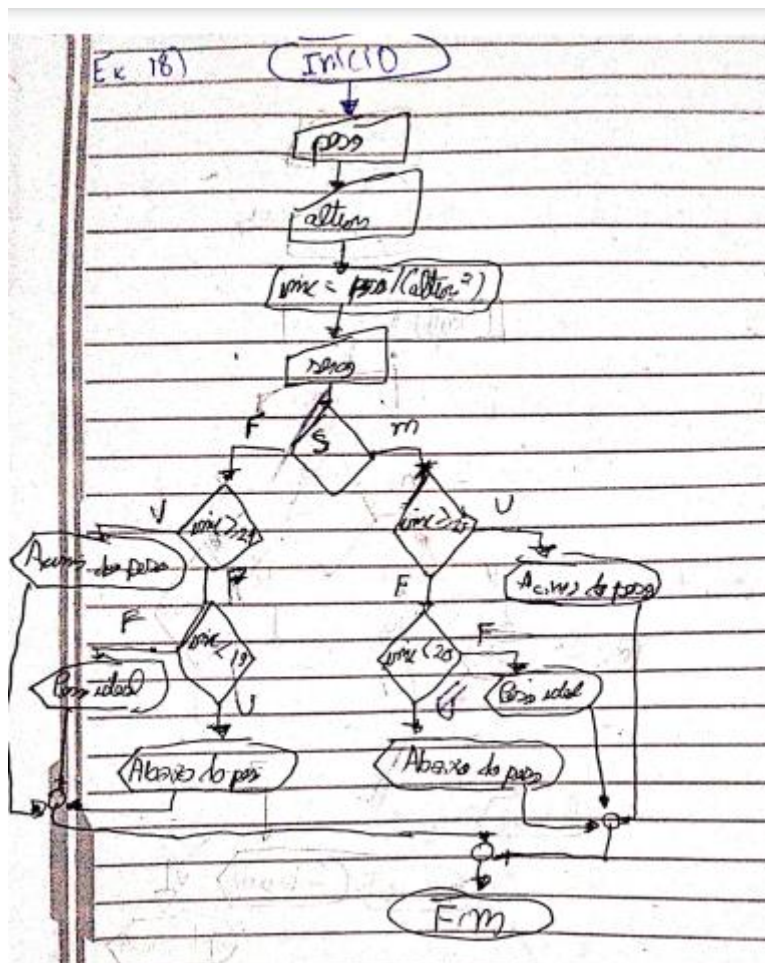 Ex 18)
Início
peso
altura
imc = peso/(altura²)
sexo
F
S
m
V
imc ≥ 24
imc ≥ 25
V
Acima do peso
F
F
Acima do peso
F
imc < 19
imc < 20
F
Peso ideal
V
V
Peso ideal
Abaixo do peso
Abaixo do peso
Fim